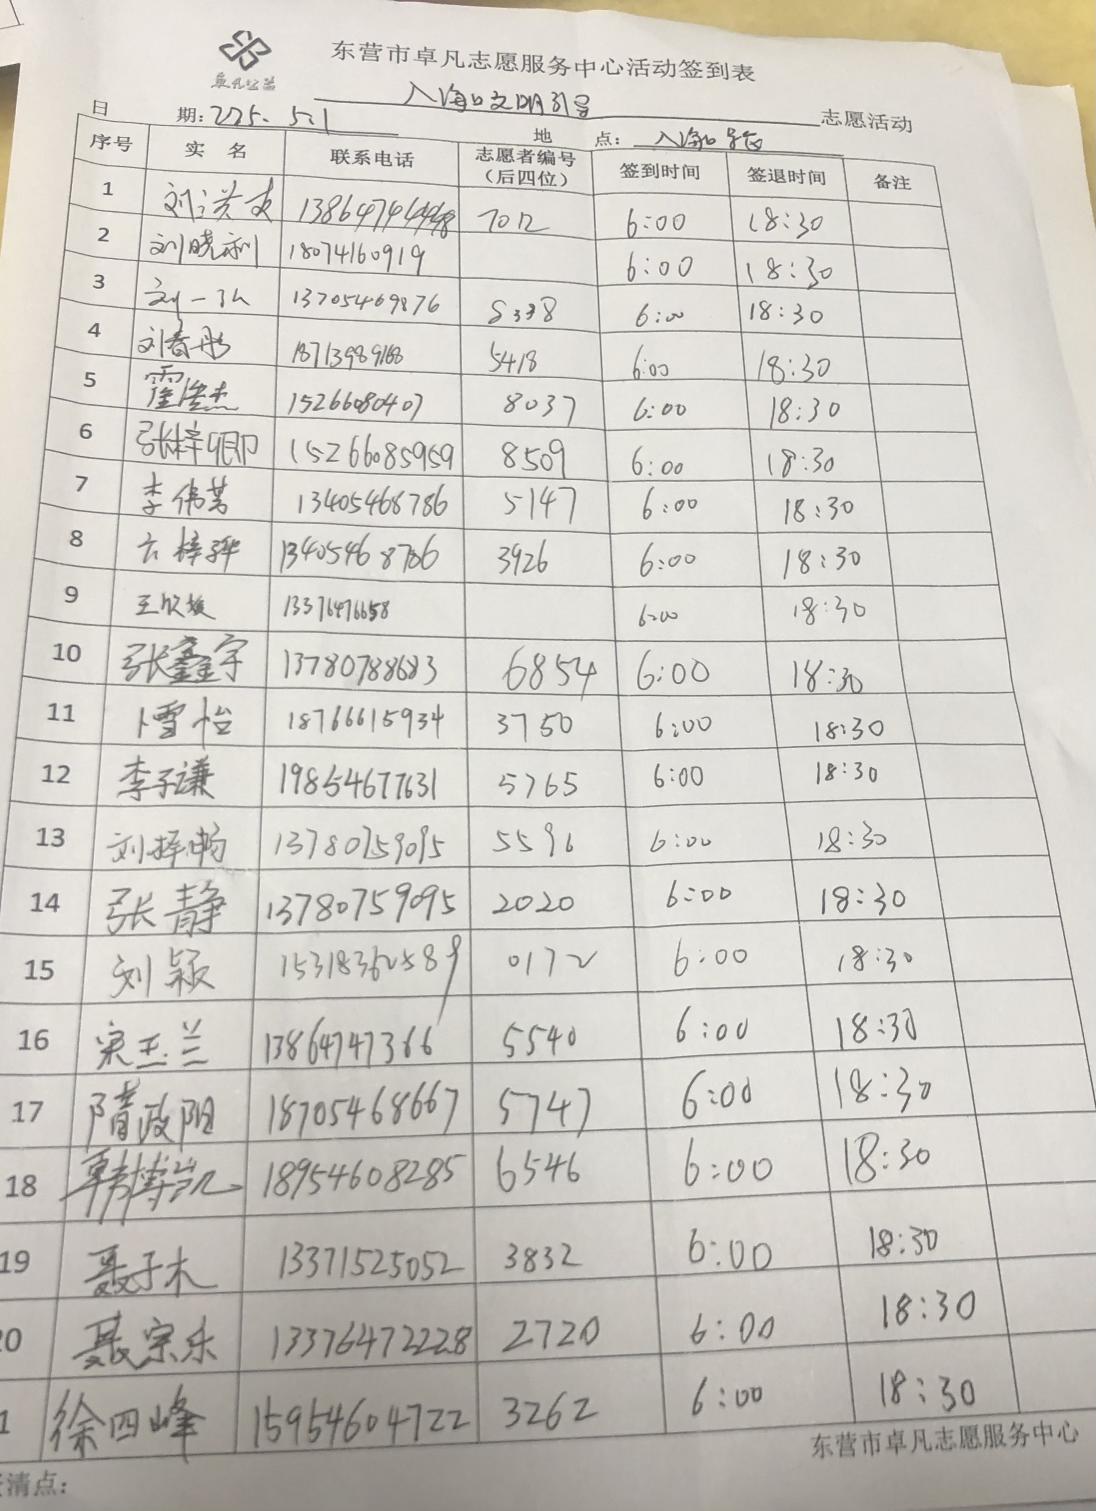 卓凡公益
东营市卓凡志愿服务中心活动签到表
入海口文明引导 志愿活动
日 期: 2025.5.1 地 点: 入海口
序号 实 名 联系电话 志愿者编号（后四位） 签到时间 签退时间 备注
1 刘 7012 6:00 18:30
2 刘晓利 18074160919 6:00 18:30
3 刘一 13705469876 6:00 18:30
4 刘春彤 18713989168 5418 6:00 18:30
5 霍 15266080407 8037 6:00 18:30
6 张梓 15266085959 8509 6:00 18:30
7 李伟芳 13405468786 5147 6:00 18:30
8 梓骅 13405468786 3926 6:00 18:30
9 王欣 13376476658 6:00 18:30
10 张鑫宇 13780788683 6854 6:00 18:30
11 卜雪怡 18766615934 3750 6:00 18:30
12 李子谦 19854677631 5765 6:00 18:30
13 刘梓畅 13780759095 5596 6:00 18:30
14 张静 13780759095 2020 6:00 18:30
15 刘颖 15318362589 0172 6:00 18:30
16 宋玉兰 13864747366 5540 6:00 18:30
17 隋政阳 18705468667 5747 6:00 18:30
18 韩博凯 18954608285 6546 6:00 18:30
19 聂子木 13371525052 3832 6:00 18:30
0 聂宗乐 13376472228 2720 6:00 18:30
1 徐四峰 15954604722 3262 6:00 18:30
东营市卓凡志愿服务中心
清点：